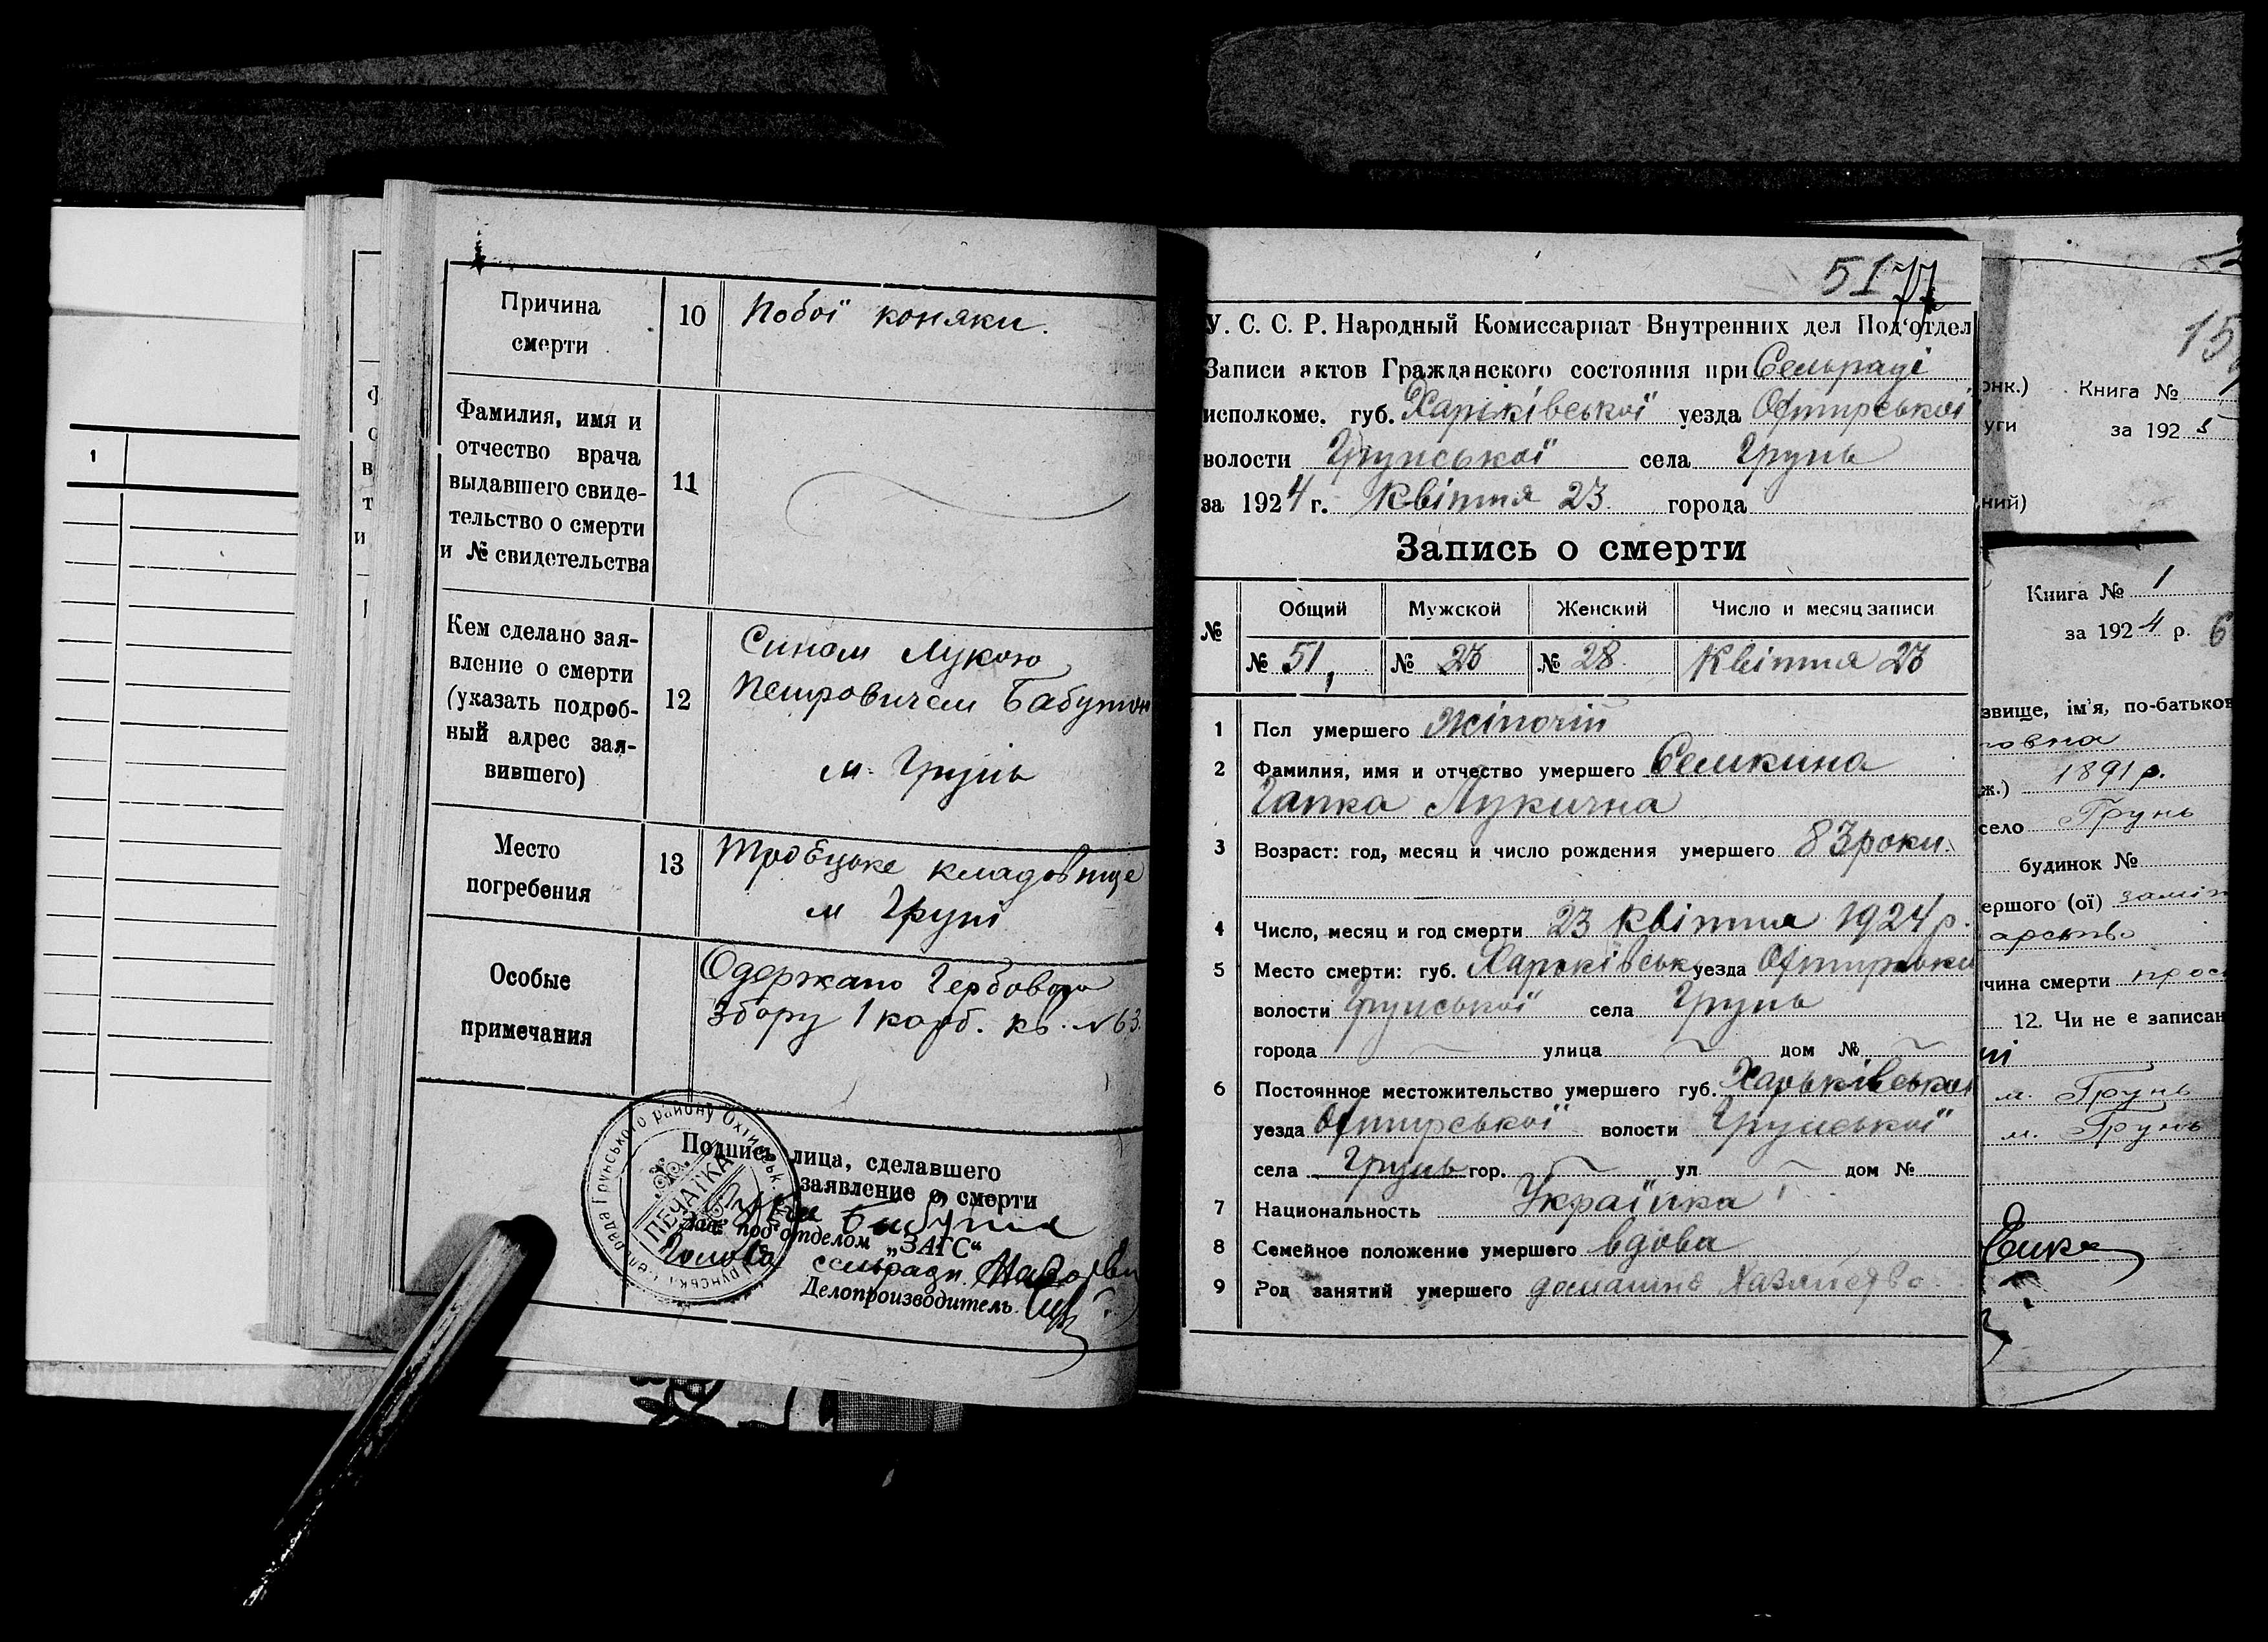 1
Причина
смерти
10
Побої коняки.
Фамилия, имя и
отчество врача
выдавшего свиде-
тельство о смерти
и № свидетельства
11
Кем сделано зая-
вление о смерти
(указать подроб-
ный адрес зая-
вившего)
12
Сином Лукою
Петровичем Бабутом
м. Грунь
Место
погребения
13
Троєцьке кладовище
м Груні
Особые
примечания
Одержано Гербового
Збору 1 карб. кв. №63.
Подпись лица, сделавшего
заявление о смерти
Зав. под'отделом „ЗАГС“
Голова сельради
Делопроизводитель
ПЕЧАТКА
5171
У. С. С. Р. Народный Комиссариат Внутренних дел Под'отдел
Записи актов Гражданского состояния при Сельраді
исполкоме. губ. Харьківської уезда Охтирської
волости Грунської села Грунь
за 1924 г. Квітня 23 города
Запись о смерти
№ Общий Мужской Женский Число и месяц записи
№ 51, № 23 № 28. Квітня 23
1 Пол умершего Жіночій
2 Фамилия, имя и отчество умершего Семкина
Гапка Лукична
3 Возраст: год, месяц и число рождения умершего 83 роки.
4 Число, месяц и год смерти 23 квітня 1924 р.
5 Место смерти: губ. Харьківськ уезда Охтирськи
волости Грунської села Грунь
города улица дом №
6 Постоянное местожительство умершего губ. Харьківської
уезда Охтирської волости Грунської
села Грунь гор. ул дом №
7 Национальность Українка
8 Семейное положение умершего вдова
9 Род занятий умершего домашнє хазяйство
Книга №
за 192 5
ний)
Книга № 1
за 1924 р. 6
звище, ім'я, по-батьков
овна
ж.) 1891 р.
село Грунь
будинок №
ершого (ої) заміж
арство
чина смерти
12. Чи не є записан
м. Грунь
м. Грунь